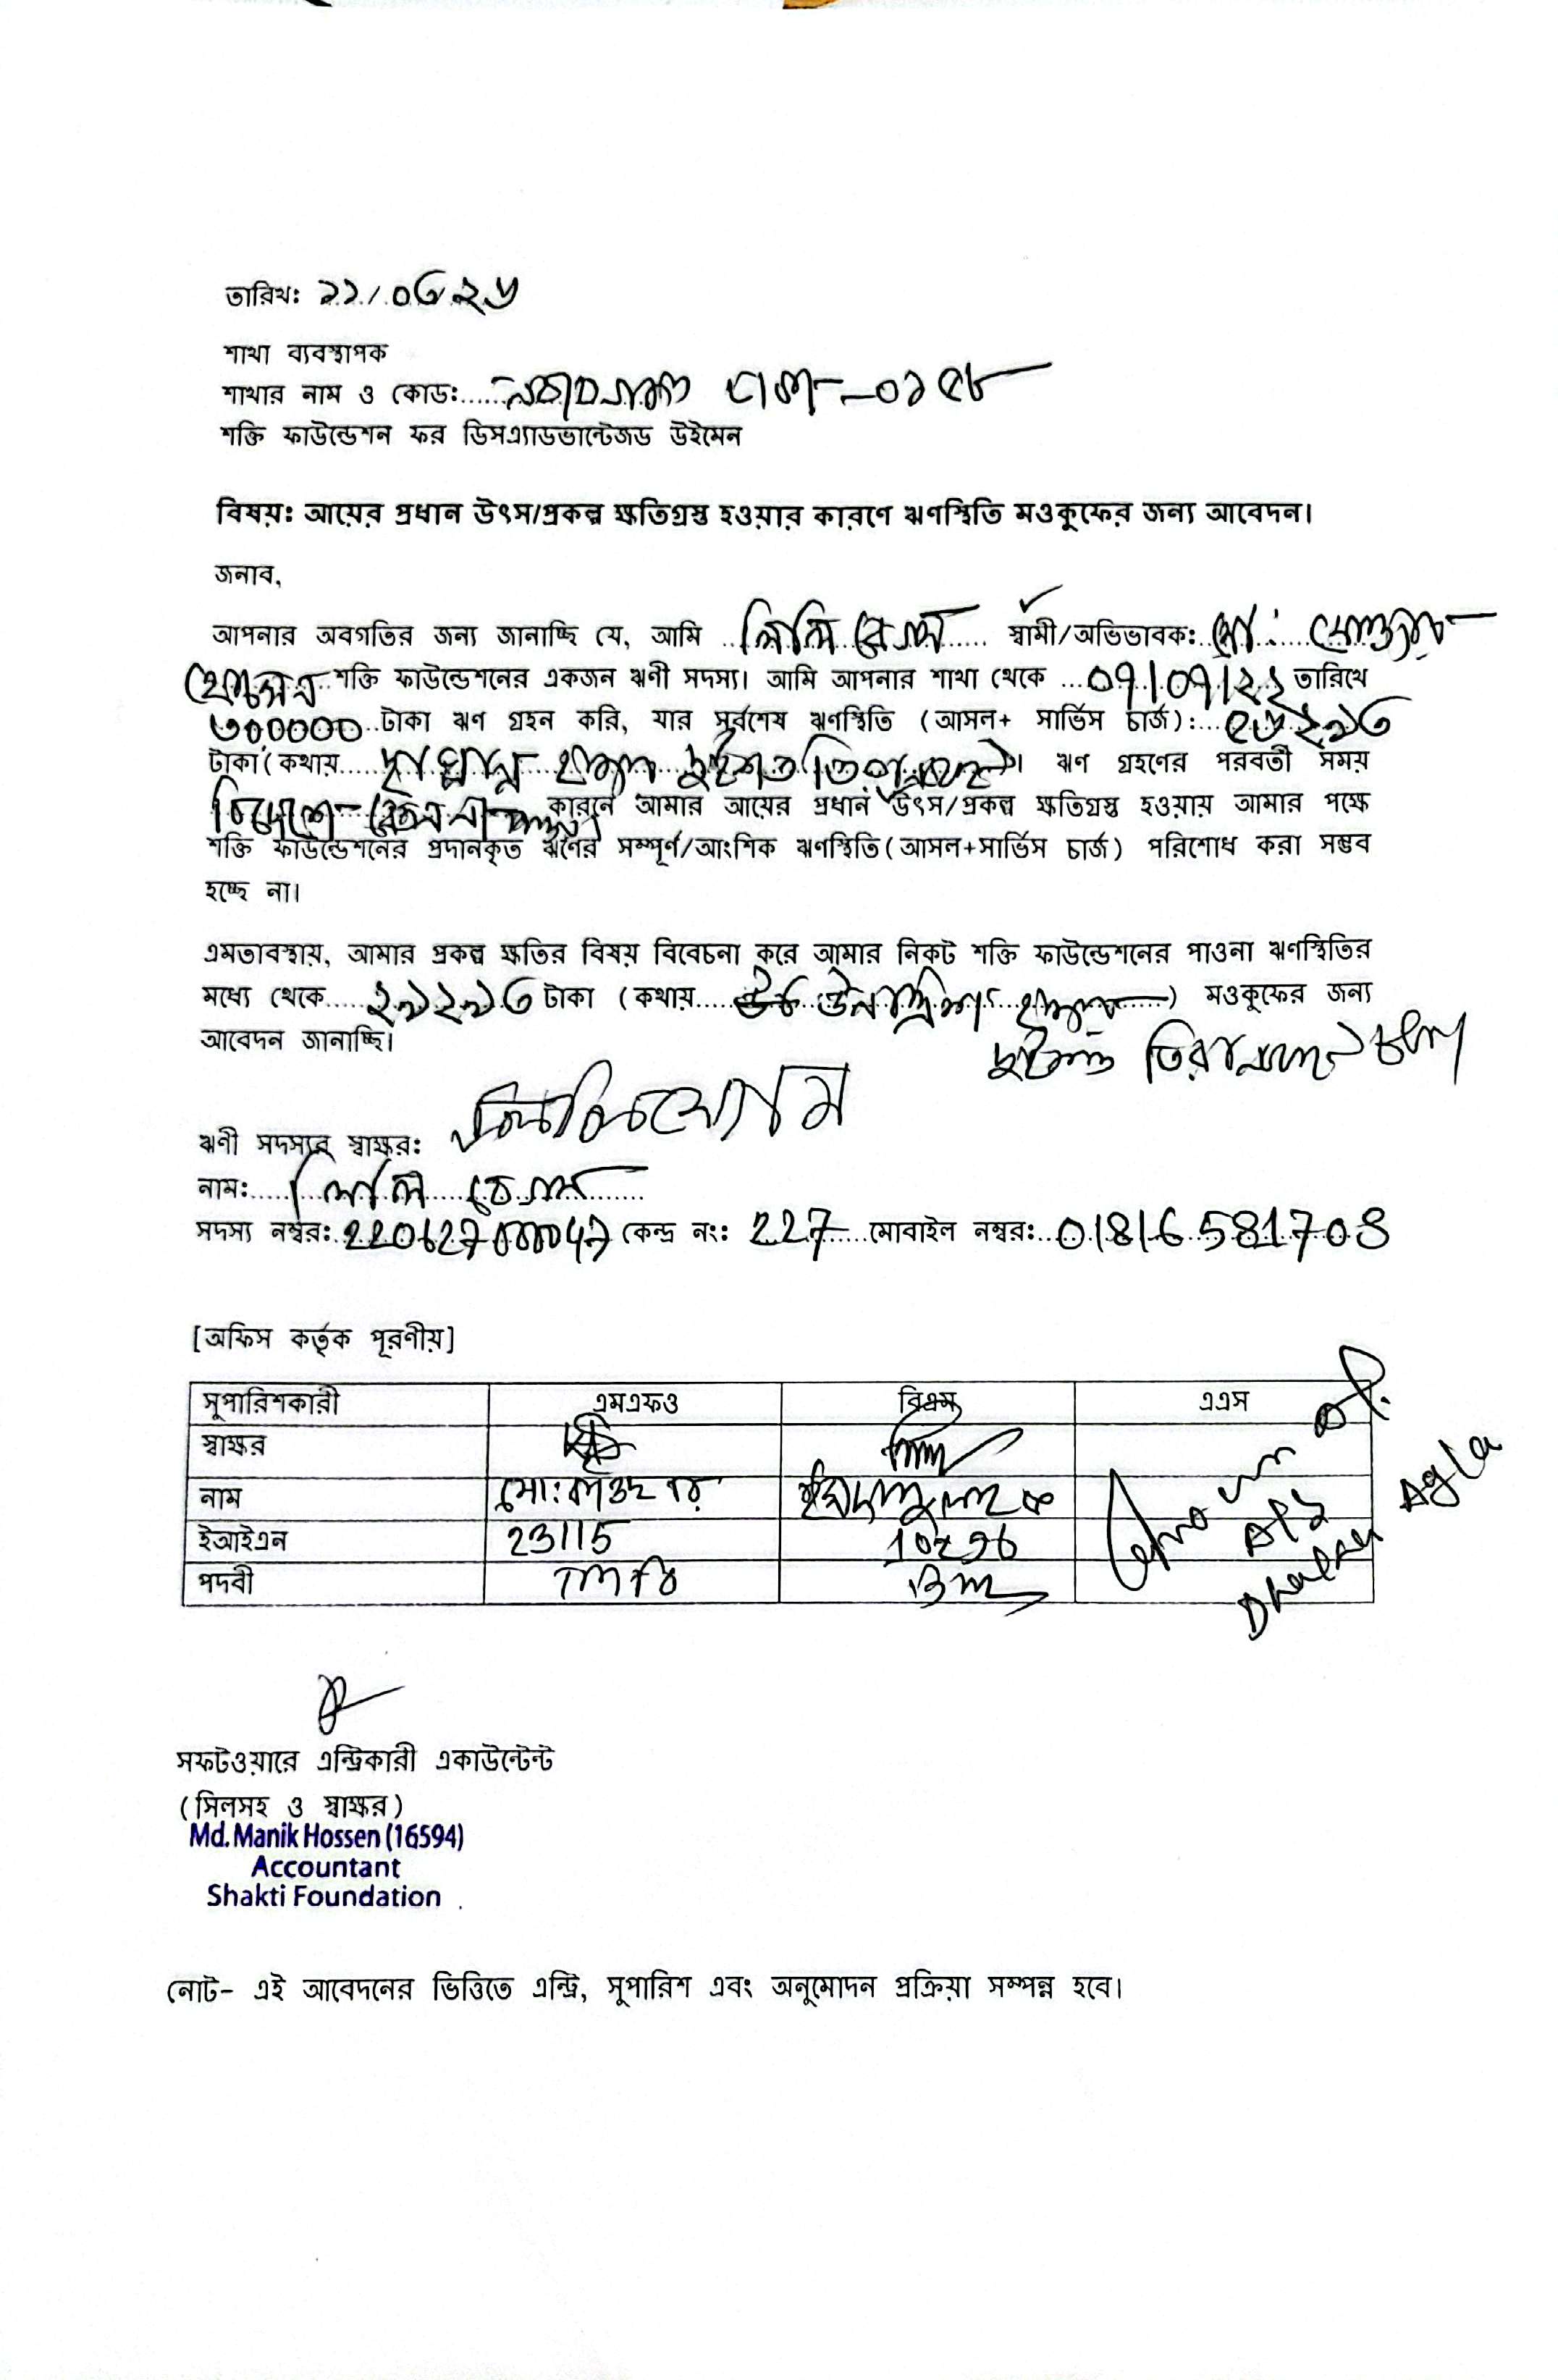 তারিখ: ১১/০৩/২৬
শাখা ব্যবস্থাপক
শাখার নাম ও কোড: -০১৫৮
শক্তি ফাউন্ডেশন ফর ডিসএ্যাডভান্টেজড উইমেন
বিষয়: আয়ের প্রধান উৎস/প্রকল্প ক্ষতিগ্রস্ত হওয়ার কারণে ঋণস্থিতি মওকুফের জন্য আবেদন।
জনাব,
আপনার অবগতির জন্য জানাচ্ছি যে, আমি লিলি বেগম স্বামী/অভিভাবক: মো:
হোসেন শক্তি ফাউন্ডেশনের একজন ঋণী সদস্য। আমি আপনার শাখা থেকে ০৭/০৭/২২ তারিখে
৩০০০০০ টাকা ঋণ গ্রহন করি, যার সর্বশেষ ঋণস্থিতি (আসল+ সার্ভিস চার্জ):
টাকা(কথায় হাজার দুইশত )। ঋণ গ্রহণের পরবর্তী সময়
বিদেশে কারনে আমার আয়ের প্রধান উৎস/প্রকল্প ক্ষতিগ্রস্ত হওয়ায় আমার পক্ষে
শক্তি ফাউন্ডেশনের প্রদানকৃত ঋণের সম্পূর্ণ/আংশিক ঋণস্থিতি(আসল+সার্ভিস চার্জ) পরিশোধ করা সম্ভব
হচ্ছে না।
এমতাবস্থায়, আমার প্রকল্প ক্ষতির বিষয় বিবেচনা করে আমার নিকট শক্তি ফাউন্ডেশনের পাওনা ঋণস্থিতির
মধ্যে থেকে ২৯২৯৩ টাকা (কথায় উনত্রিশ হাজার) মওকুফের জন্য
দুইশত তিরানব্বই টাকা
আবেদন জানাচ্ছি।
ঋণী সদস্যর স্বাক্ষর:
নাম: লিলি বেগম
সদস্য নম্বর: কেন্দ্র নং: 227 মোবাইল নম্বর: 01816581708
[অফিস কর্তৃক পূরণীয়]
সুপারিশকারী এমএফও বিএম এএস
স্বাক্ষর
নাম মো:
ইআইএন 23115
পদবী BM
সফটওয়ারে এন্ট্রিকারী একাউন্টেন্ট
(সিলসহ ও স্বাক্ষর)
Md. Manik Hossen (16594)
Accountant
Shakti Foundation
নোট- এই আবেদনের ভিত্তিতে এন্ট্রি, সুপারিশ এবং অনুমোদন প্রক্রিয়া সম্পন্ন হবে।